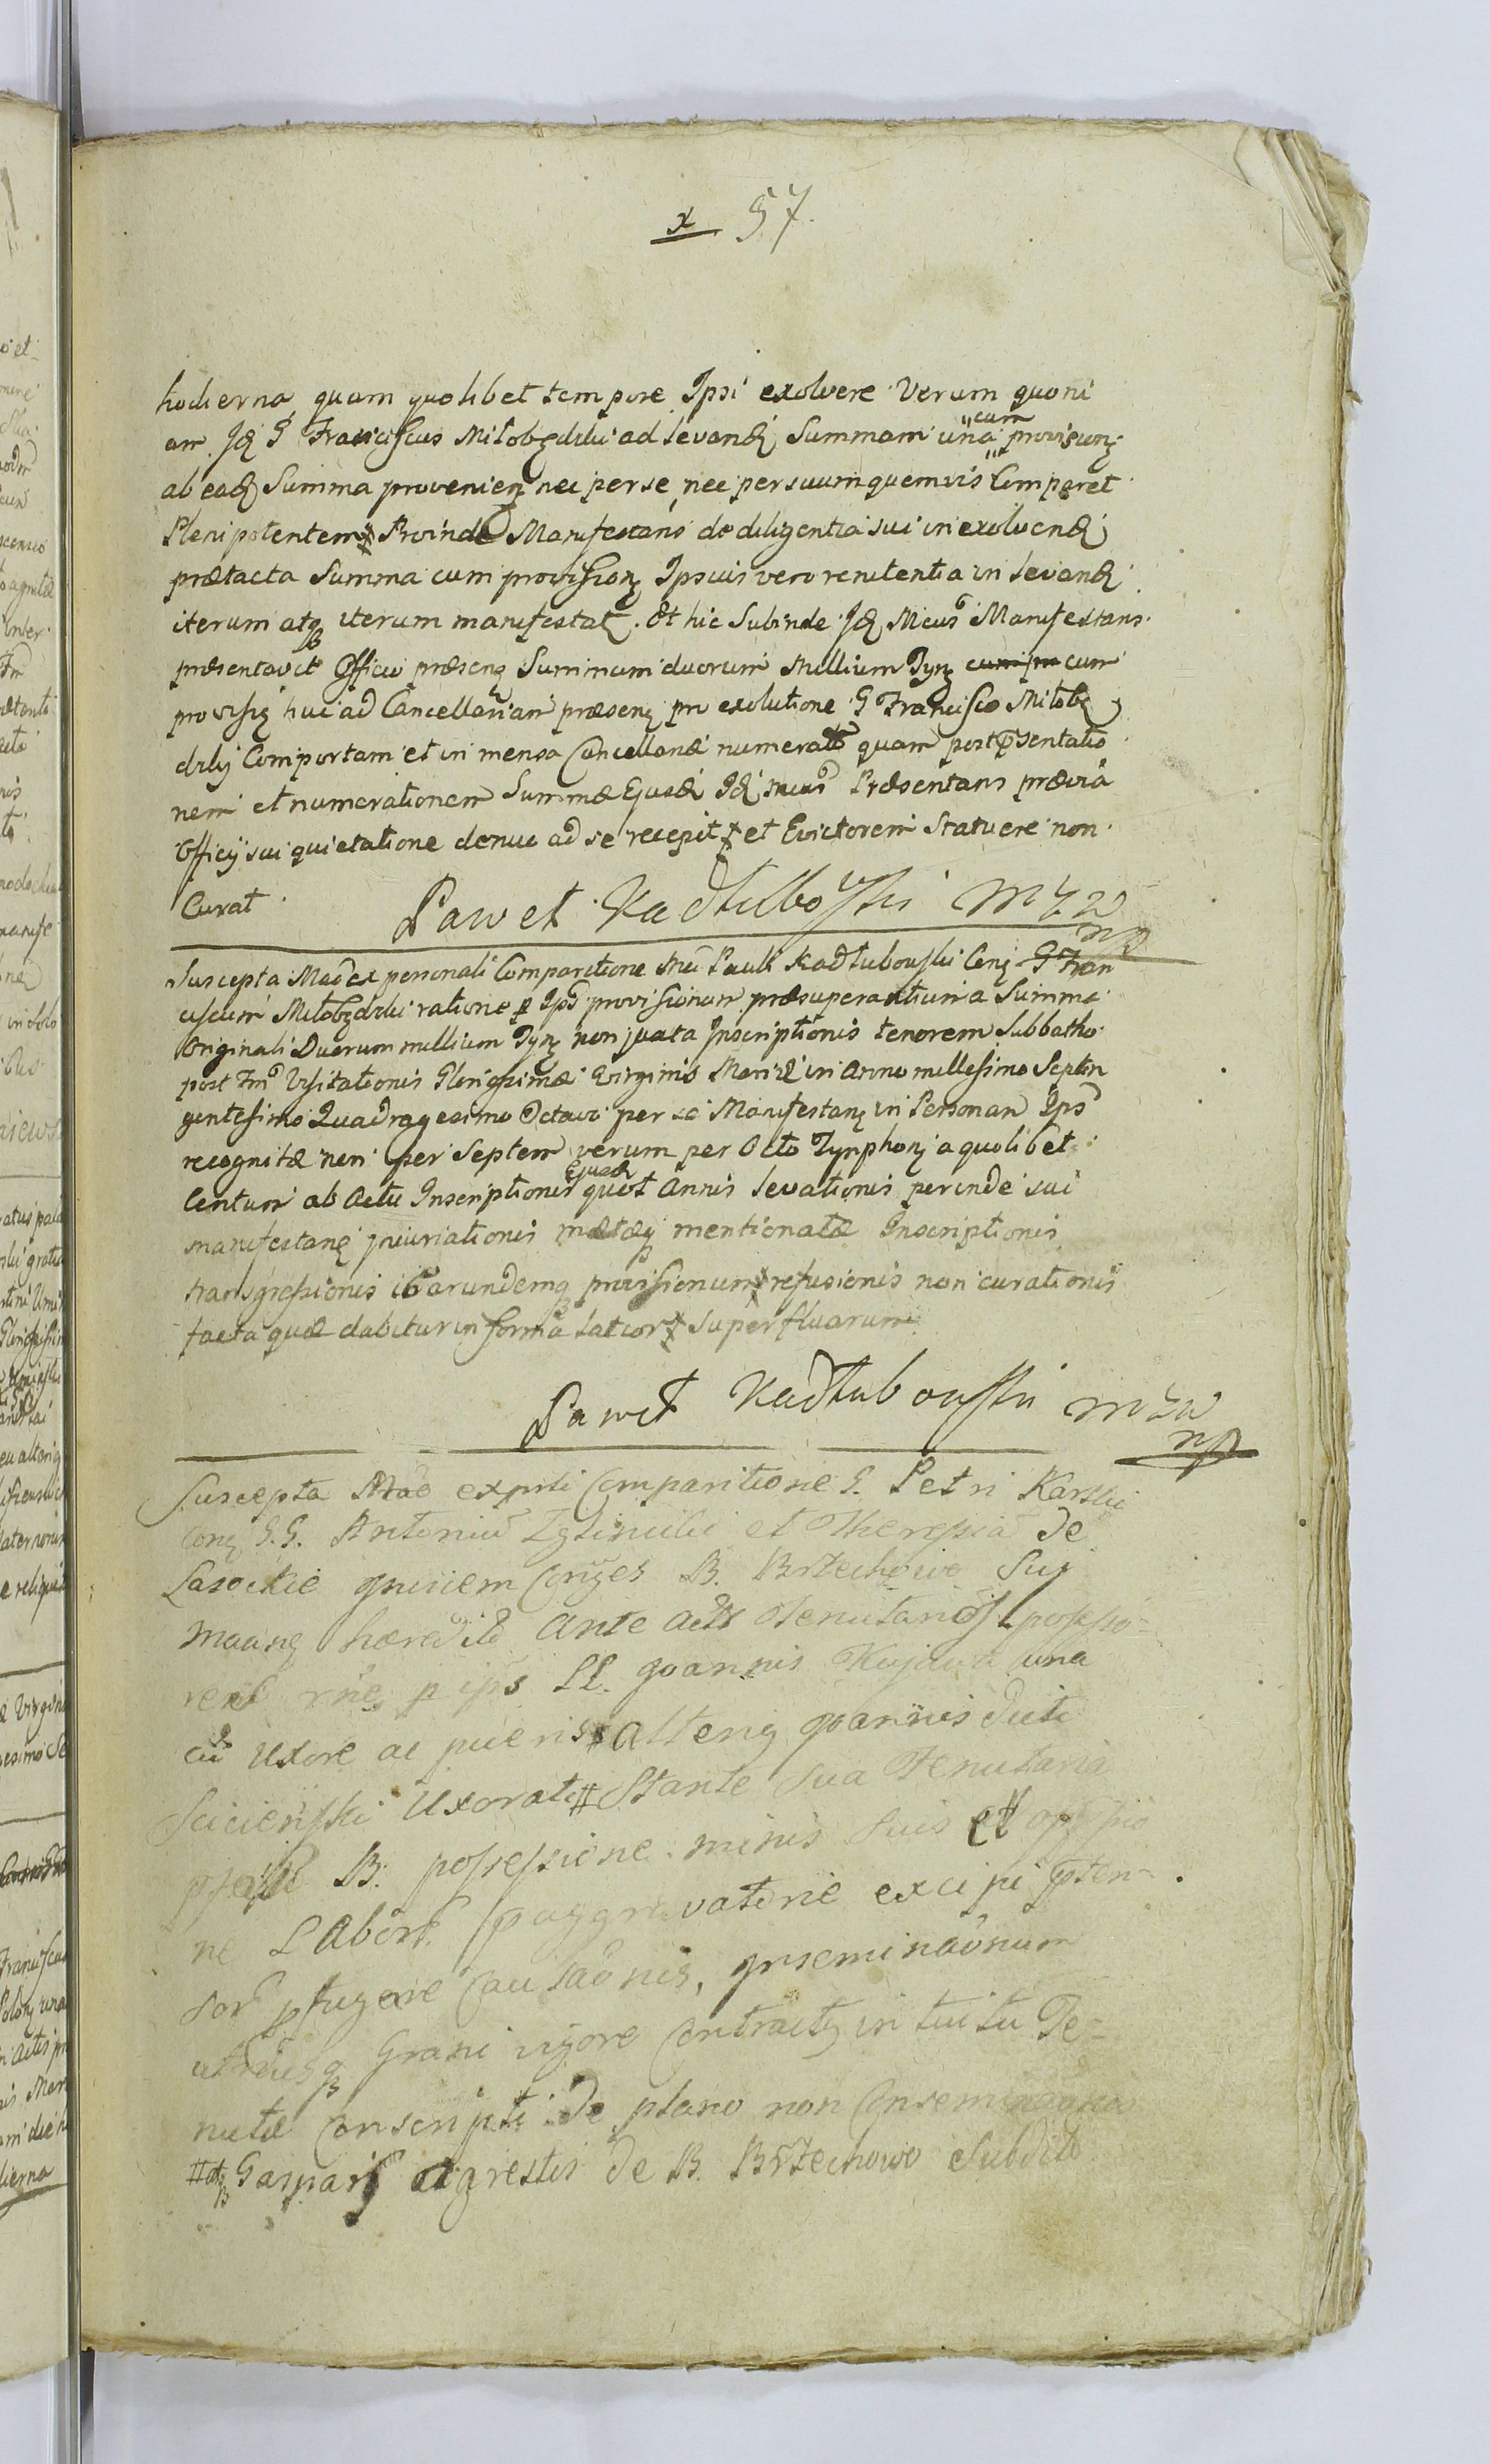 x 57.
hodierna quam quolibet tempore Ipsi exolvere Verum quoni
am Jd G Franciscus Miłobędzki ad levand Summam una cum provision
ab ead Summa provenien nec per se, nec per suum quemvis Comparet
Plenipotentem Proinde Manifestans de diligentia sui in exolvend
prætacta Summa cum provision Ipsius vero renitentia in levand
iterum atq iterum manifestat. Et hic Subinde Jd Mcus Manifestans
præsentavit Officio præsen Summam duorum Millium Tyn cum
provisi huc ad Cancellariam præsen pro exolutione G Francisco Miłobę
dzki Comportam et in mensa Cancellariæ numerat quam post præsentatio
nem et numerationem Summæ Ejusd Jd mcus Præsentans prævia
Officij sui quietatione denuo ad se recepit et Evictorem Statuere non
Curat Paweł Kadłubowski mzw
mp
Suscepta Mad ex personali Comparitione Mci Pauli Kadłubowski Con G Fran
ciscum Miłobędzki ratione p Ips provisionum præsuperantium a Summa
Originali Duorum millium Tyn non juxta Inscriptionis tenorem Sabbatho
post Fm Visitationis Glorissimæ Virginis Mariæ in Anno millesimo Septin
gentesimo Quadragesimo Octavo per se Manifestan in Personam Ips
recognitæ non per Septem verum per Octo Tynphon a quolibet
Centum ab Actu Inscriptionis Ejusd quot Annis levationis perinde sui
manifestan injuriationis metæq mentionatæ Inscriptionis
transgressionis ibarundemq provisionum refusionis non curationis
facta quæ dabitur in forma latior Superfluarum
Paweł Kadłubowski mzw
mp
Suscepta Mad ex prsli Comparitione G. Petri Karski
Con G.G. Antonium Zgliniski et Theressia de
Lasockie Conges B. Brzechowo Sup
hæred Ante Actt Tenutarios possesso-
res p ips LL. Joannis Kujawa una
cu Uxore ac pueris alterig Joannis dicti
Uxorati Stante sua Tenutaria
B. possessione minis suis et oppssio
ne Labor excipi
sor pfugere Causaonis, inseminaonum
utriusq Grani vigore Contractq intuitu Te-
nutæ Conscripti de plano non Inseminaonis
atq Gasparis agrestis de B. Brzechowo Subdit